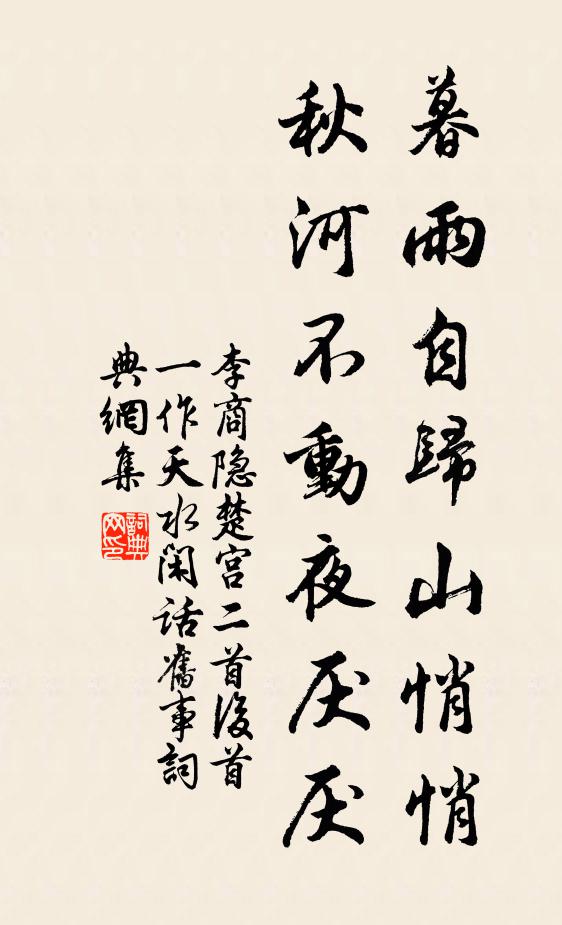 暮雨自歸山悄悄
秋河不動夜厌厌
李商隐楚宫二首後首
一作天水闲话舊事詞
典網集
詞典
网印